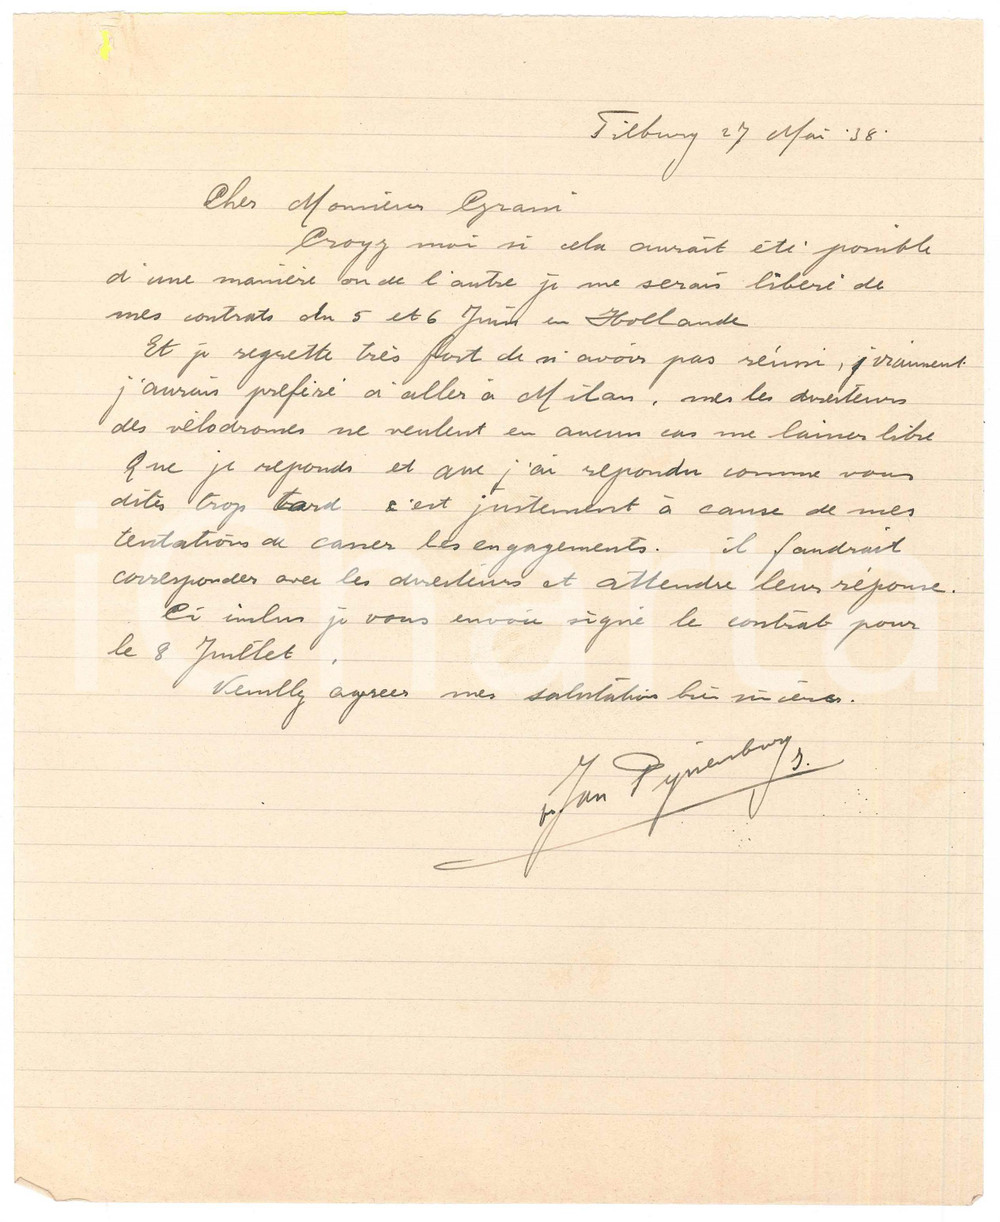 Tilburg 27 Mai '38.
Cher Monsieur Grassi
Croyz moi si cela aurait été possible
d'une manière ou de l'autre je me serais libéré de
mes contrats du 5 et 6 Juin en Hollande
Et je regrette très fort de n'avoir pas réussi, vraiment
j'aurais préféré à aller à Milan, mes les directeurs
des vélodromes ne veulent en aucun cas me laisser libre
Que je reponds et que j'ai repondu comme vous
dites trop tard c'est justement à cause de mes
tentations de casser les engagements. il faudrait
corresponder avec les directeurs et attendre leur réponse.
Ci inclus je vous envoie signé le contrat pour
le 8 Juillet.
Veuilly agreer mes salutation bien sincères.
Jan Pijnenburg
icharta